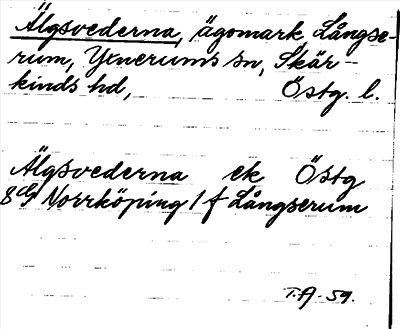 Älgsvederna, ägomark Långse-
rum, Yxnerums sn, Skär-
kinds hd, Östg. l.
Älgsvederna ek Östg
8 G Norrköping 1 f Långserum
T.A. 59.